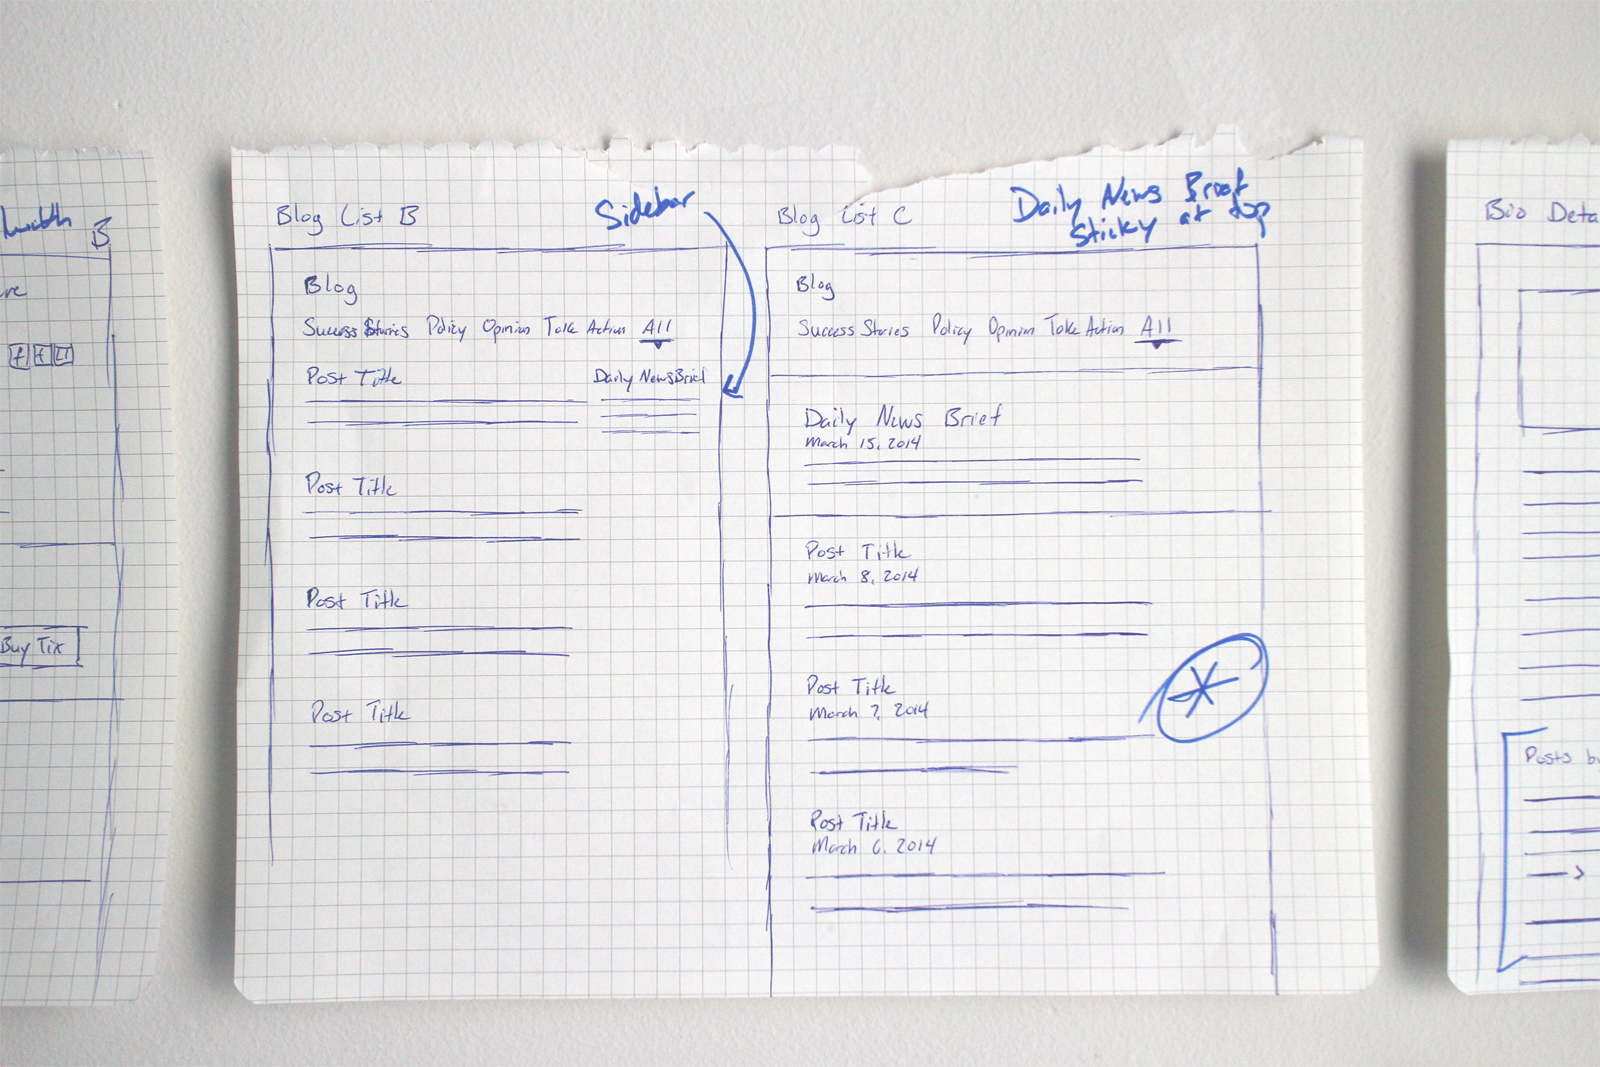 with
B
Buy Tix
Blog List B
Sidebar
Blog
Success Stories Policy Opinion Take Action All
Post Title
Daily News Brief
Post Title
Post Title
Post Title
Blog List C
Daily News Brief
Sticky at top
Blog
Success Stories Policy Opinion Take Action All
Daily News Brief
March 15, 2014
Post Title
March 8, 2014
Post Title
March 7, 2014
Post Title
March 6, 2014
Bio Deta
Posts by